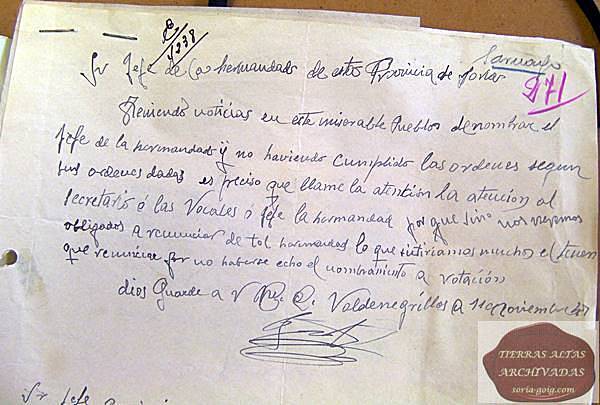 E
1238
Sarnago
971
Sr Jefe de la hermandads de esta Provincia de Soria
Teniendo noticias en este miserable Pueblos de nombrar el
Jefe de la hermandad y no haviendo cumplido las ordenes segun
sus ordenes dadas es preciso que llame la atentión la atención al
Secretario ó las Vocales ó Jefe la hermandad por que sino nos vremos
obligados a renunciar de tal hermandad lo que sintiriamos muchos el tener
que renunciar por no haberse echo el nombramiento a votación
dios Guarde a V Valdenegrillos a noviembre
Sr Jefe
TIERRAS ALTAS
ARCHIVADAS
soria-goig.com